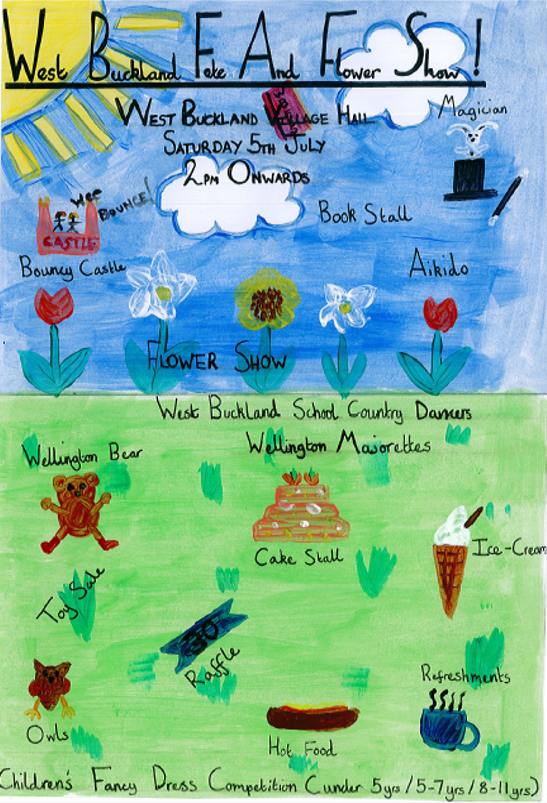 West Buckland Fete And Flower Show!
West Buckland Village Hall
Saturday 5th July
2pm Onwards
Magician
Wee
Bounce!
Castle
Bouncy Castle
Book Stall
Aikido
Flower Show
West Buckland School Country Dancers
Wellington Majorettes
Wellington Bear
Cake Stall
Ice-Cream
Toy Sale
30
Raffle
Owls
Hot Food
Refreshments
Children's Fancy Dress Competition (under 5yrs/5-7yrs/8-11yrs)